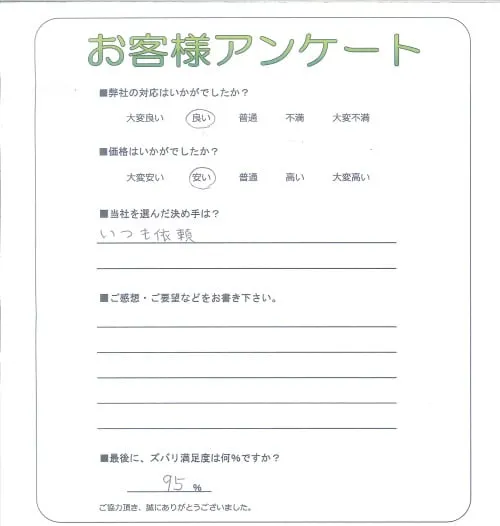 お客様アンケート
■弊社の対応はいかがでしたか？
大変良い 良い 普通 不満 大変不満
■価格はいかがでしたか？
大変安い 安い 普通 高い 大変高い
■当社を選んだ決め手は？
いつも依頼
■ご感想・ご要望などをお書き下さい。
■最後に、ズバリ満足度は何％ですか？
95 ％
ご協力頂き、誠にありがとうございました。